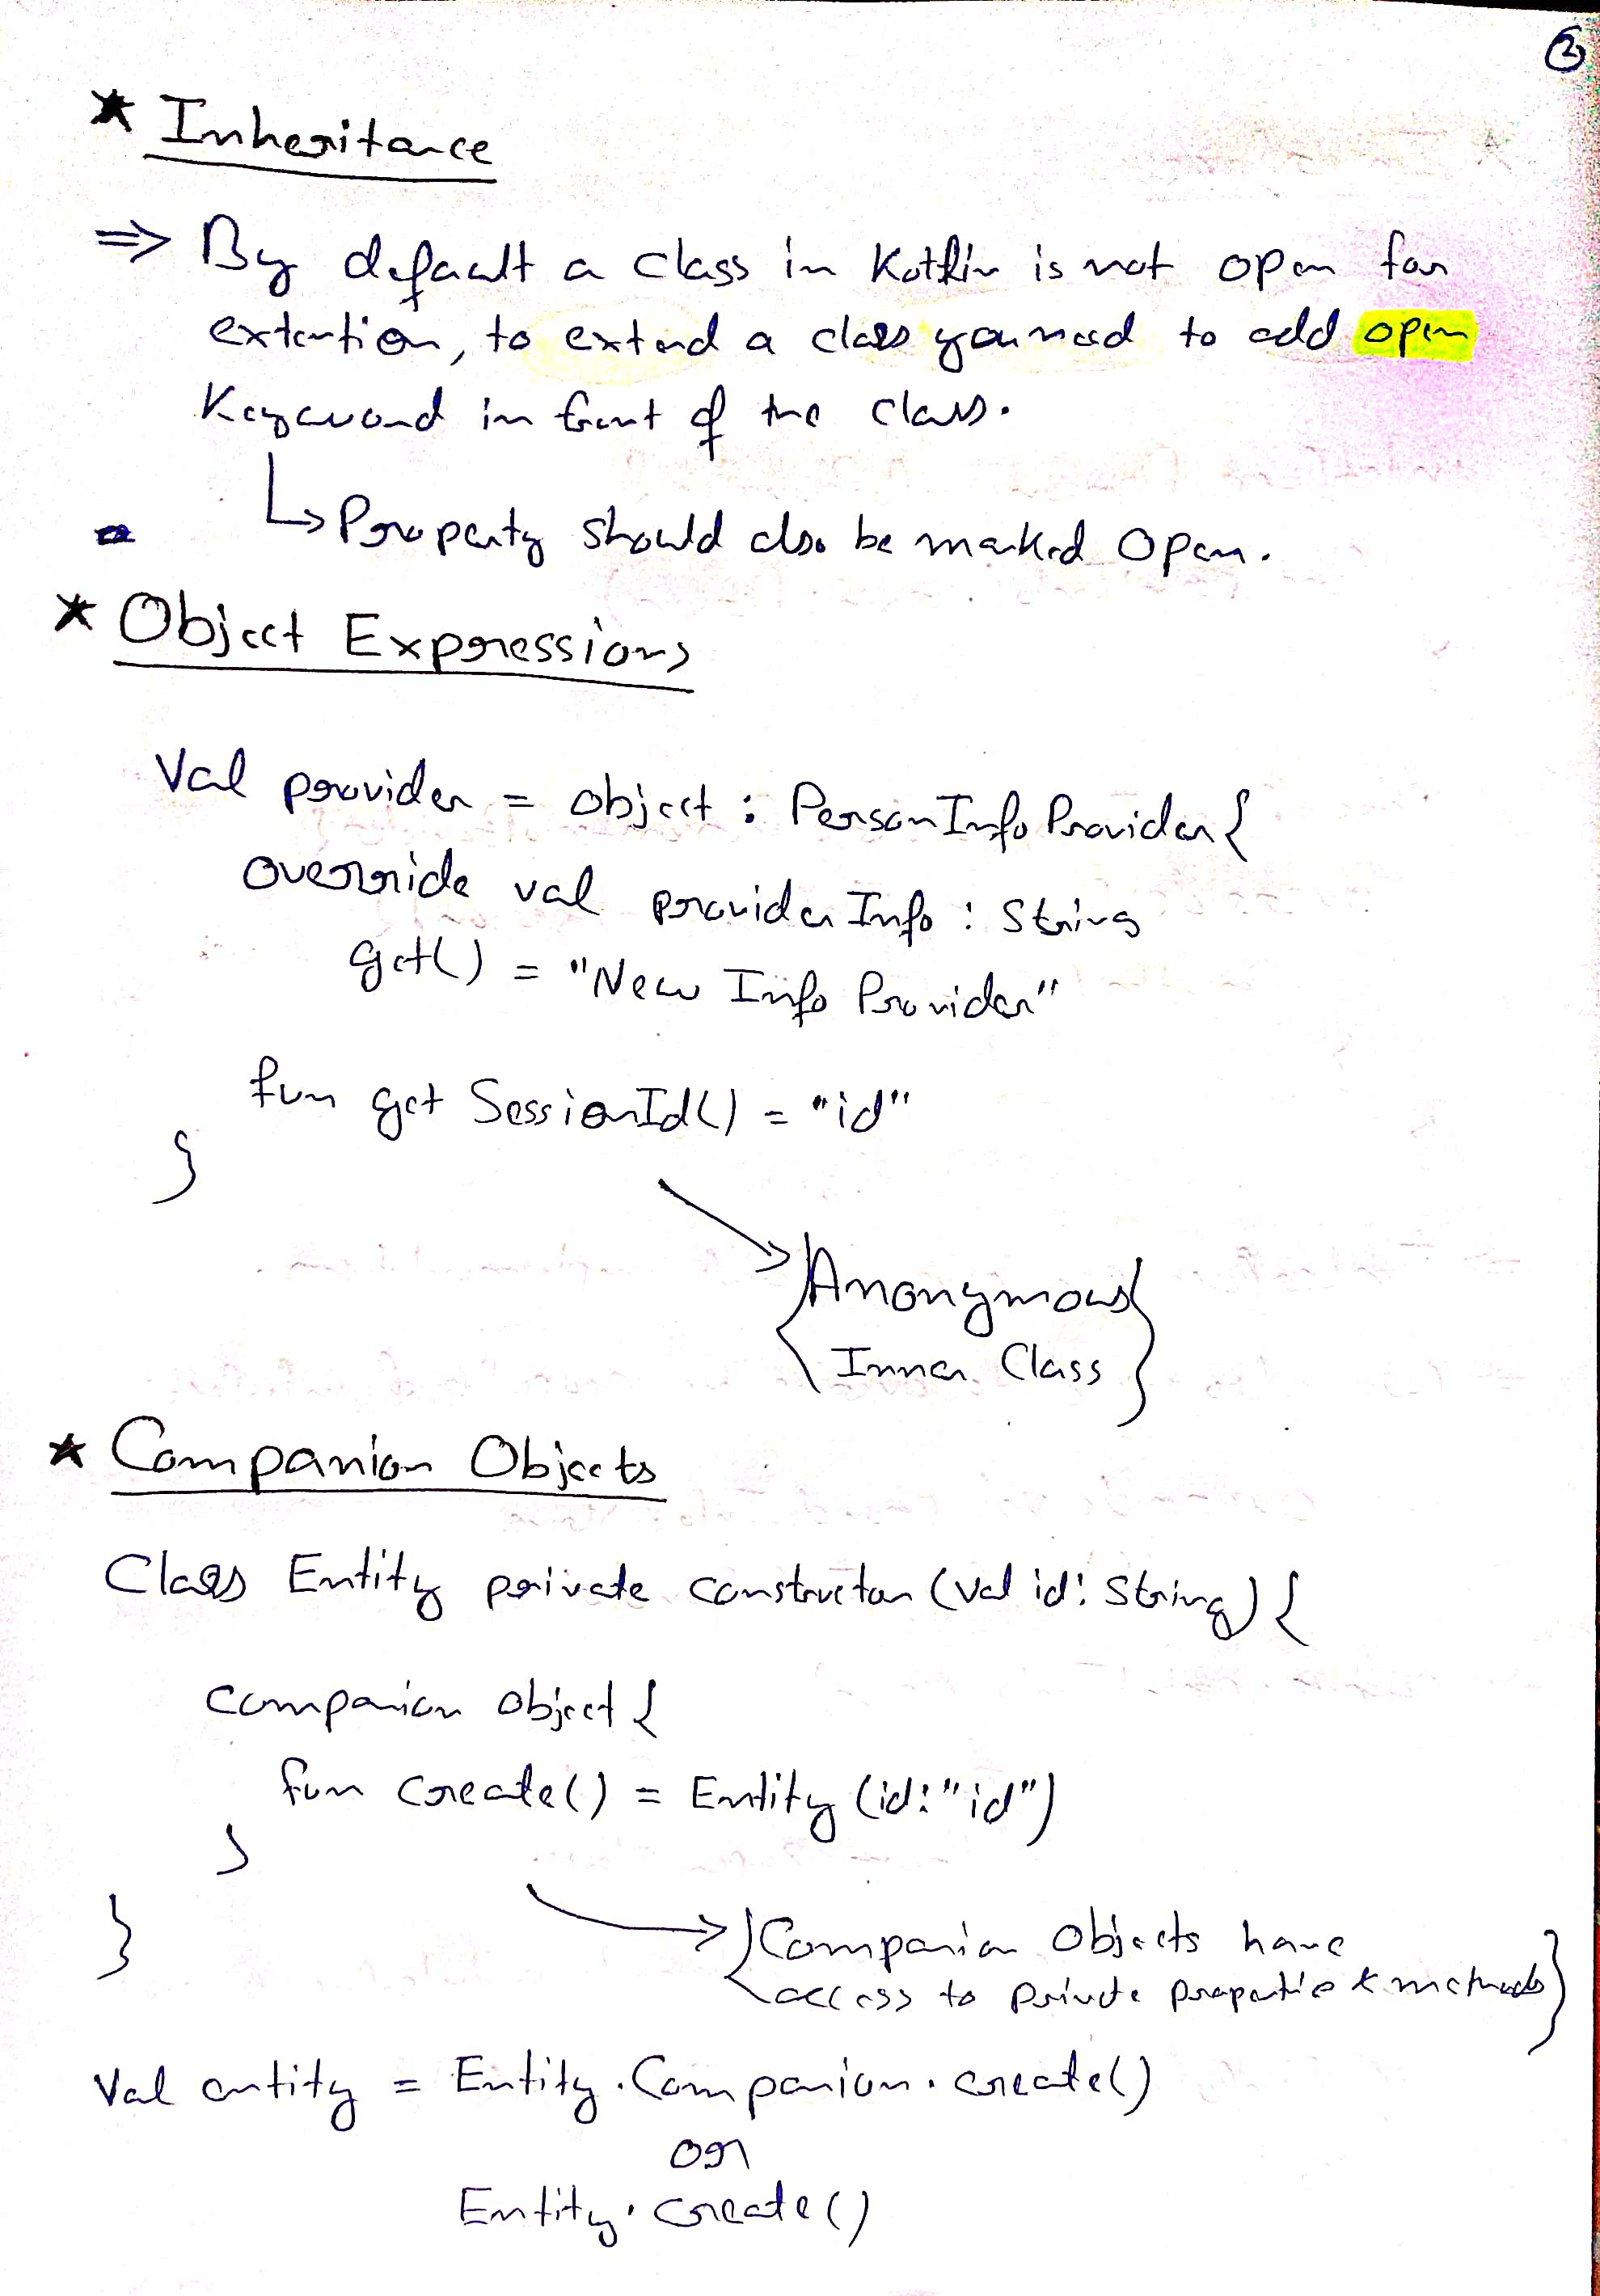 2
* Inheritance
⇒ By default a class in Kotlin is not open for
extention, to extend a class you need to add open
Keyword in front of the class.
↳ Property should also be marked Open.
* Object Expressions
Val provider = object : PersonInfoProvider {
override val providerInfo : String
get() = "New Info Provider"
fun getSessionId() = "id"
}
→ { Anonymous
Inner Class }
* Companion Objects
Class Entity private constructor (val id: String) {
companion object {
fun create() = Entity (id: "id")
}
→ { Companion Objects have
}
access to private propertie & methods }
Val entity = Entity.Companion.create()
or
Entity.create()